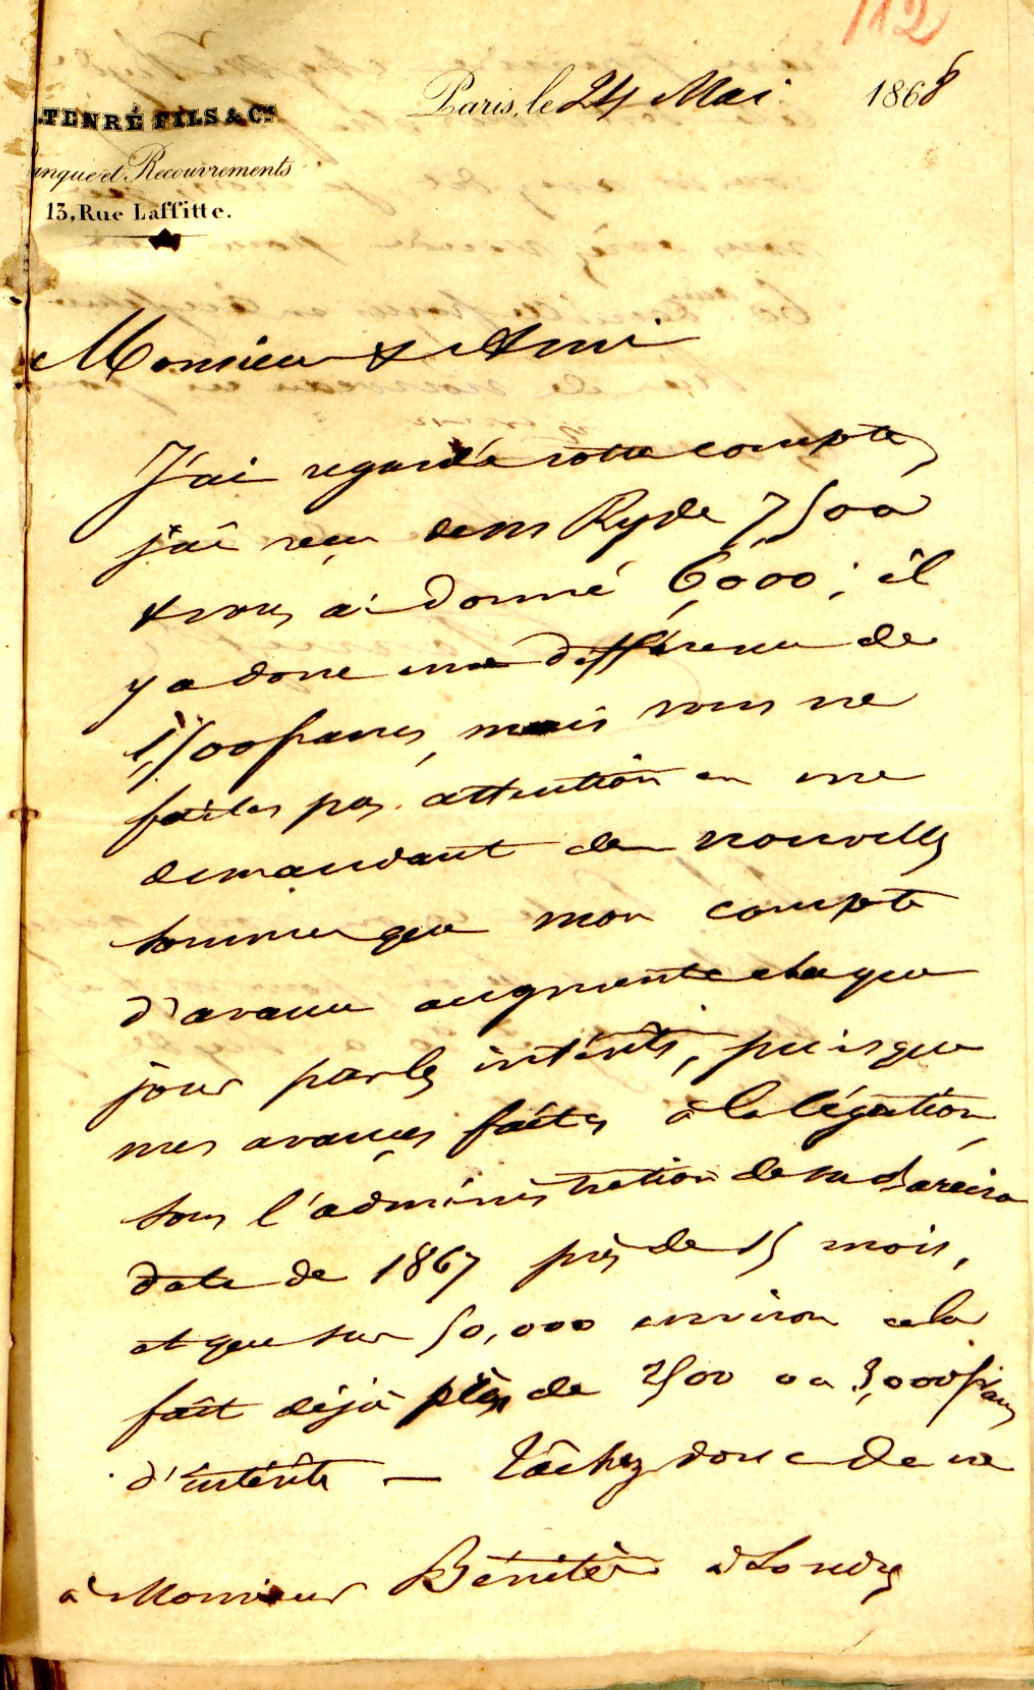 112
Paris, le 24 Mai 1868
.TENRÉ FILS & Cie
anque et Recouvrements
13, Rue Laffitte.
Monsieur & Ami
J'ai regardé votre compte,
j'ai reçu de Mr Ryde 7,500
& vous ai donné 6,000 ; il
y a donc une différence de
1,500 francs, mais vous ne
faites pas attention en me
demandant de nouvelles
sommes que mon compte
d'avance augmente chaque
jour par les intérêts, puisque
mes avances faites à la légation
sous l'administration de Mr Bareiro
date de 1867 près de 15 mois,
et que sur 50,000 environ cela
fait déjà près de 2500 ou 3,000 francs
d'intérêts — Tâchez donc de me
à Monsieur Bénitès à Londres